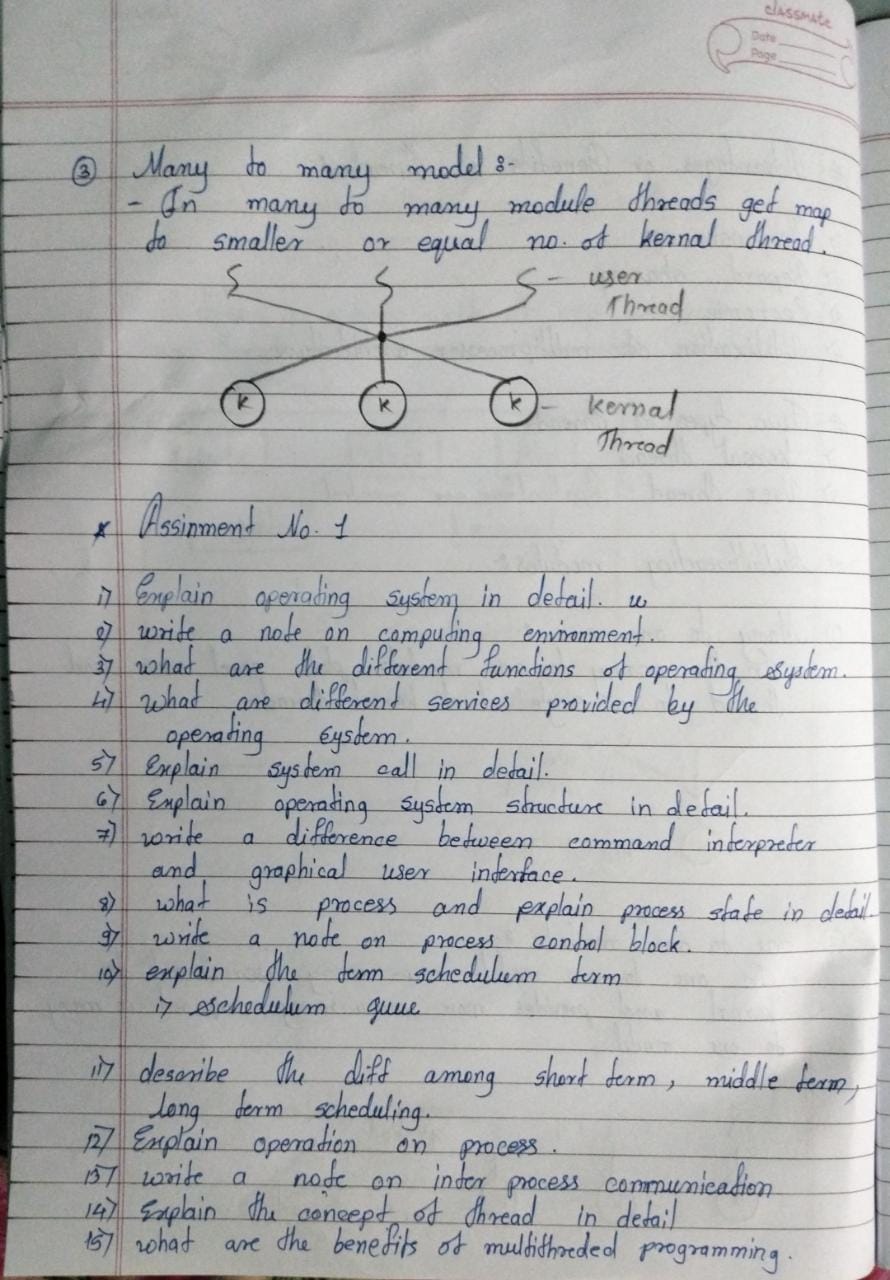 classmate
Date
Page
③ Many to many model :-
- In many to many module threads get map
to smaller or equal no. of kernal thread.
- user
Thread
K K K - kernal
Thread
* Assinment No. 1
1) Explain operating system in detail.
2) write a note on computing environment.
3) what are the different functions of operating system.
4) what are different services provided by the
operating system.
5) Explain system call in detail.
6) Explain operating system structure in detail.
7) write a difference between command interpreter
and graphical user interface.
8) what is process and explain process state in detail.
9) write a note on process control block.
10) explain the term schedulum term
i) schedulum quue
11) describe the diff among short term, middle term,
long term scheduling.
12) Explain operation on process.
13) write a note on inter process communication
14) Explain the concept of thread in detail
15) what are the benefits of multithreded programming.